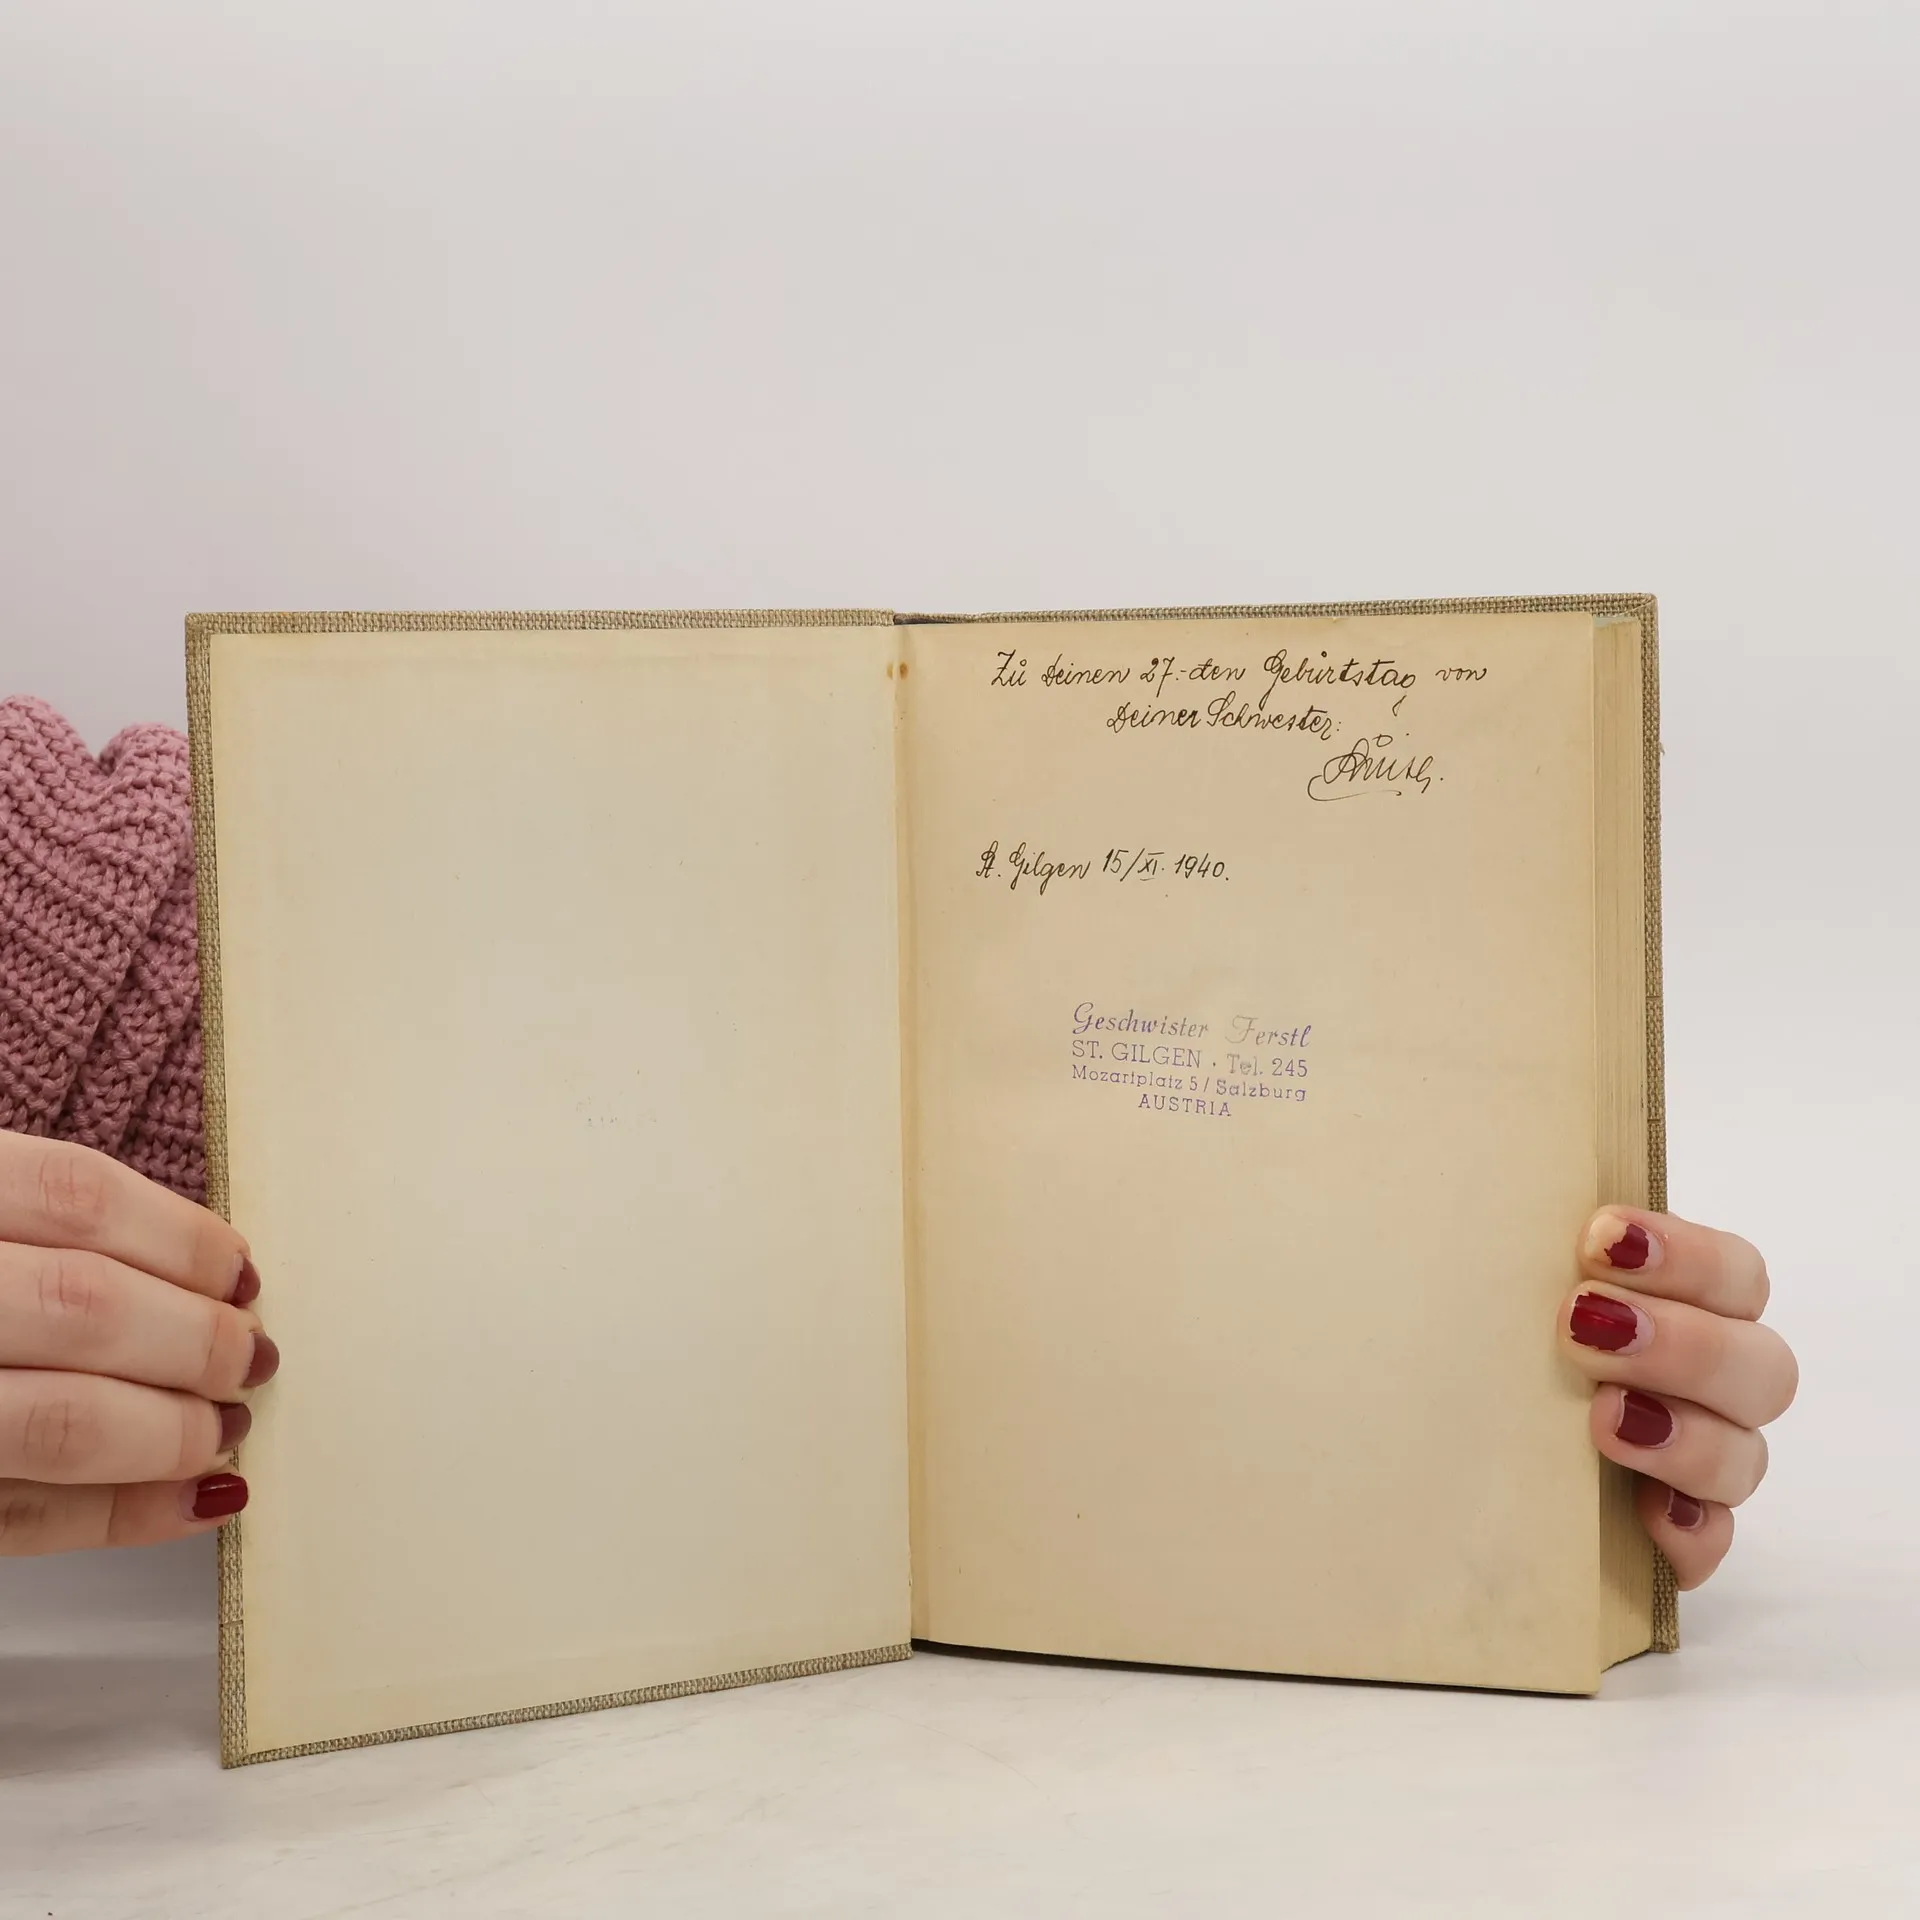 Zu Deinen 27.-ten Geburtstag von
Deiner Schwester:
St. Gilgen 15/XI. 1940.
Geschwister Ferstl
ST. GILGEN · Tel. 245
Mozartplatz 5 / Salzburg
AUSTRIA